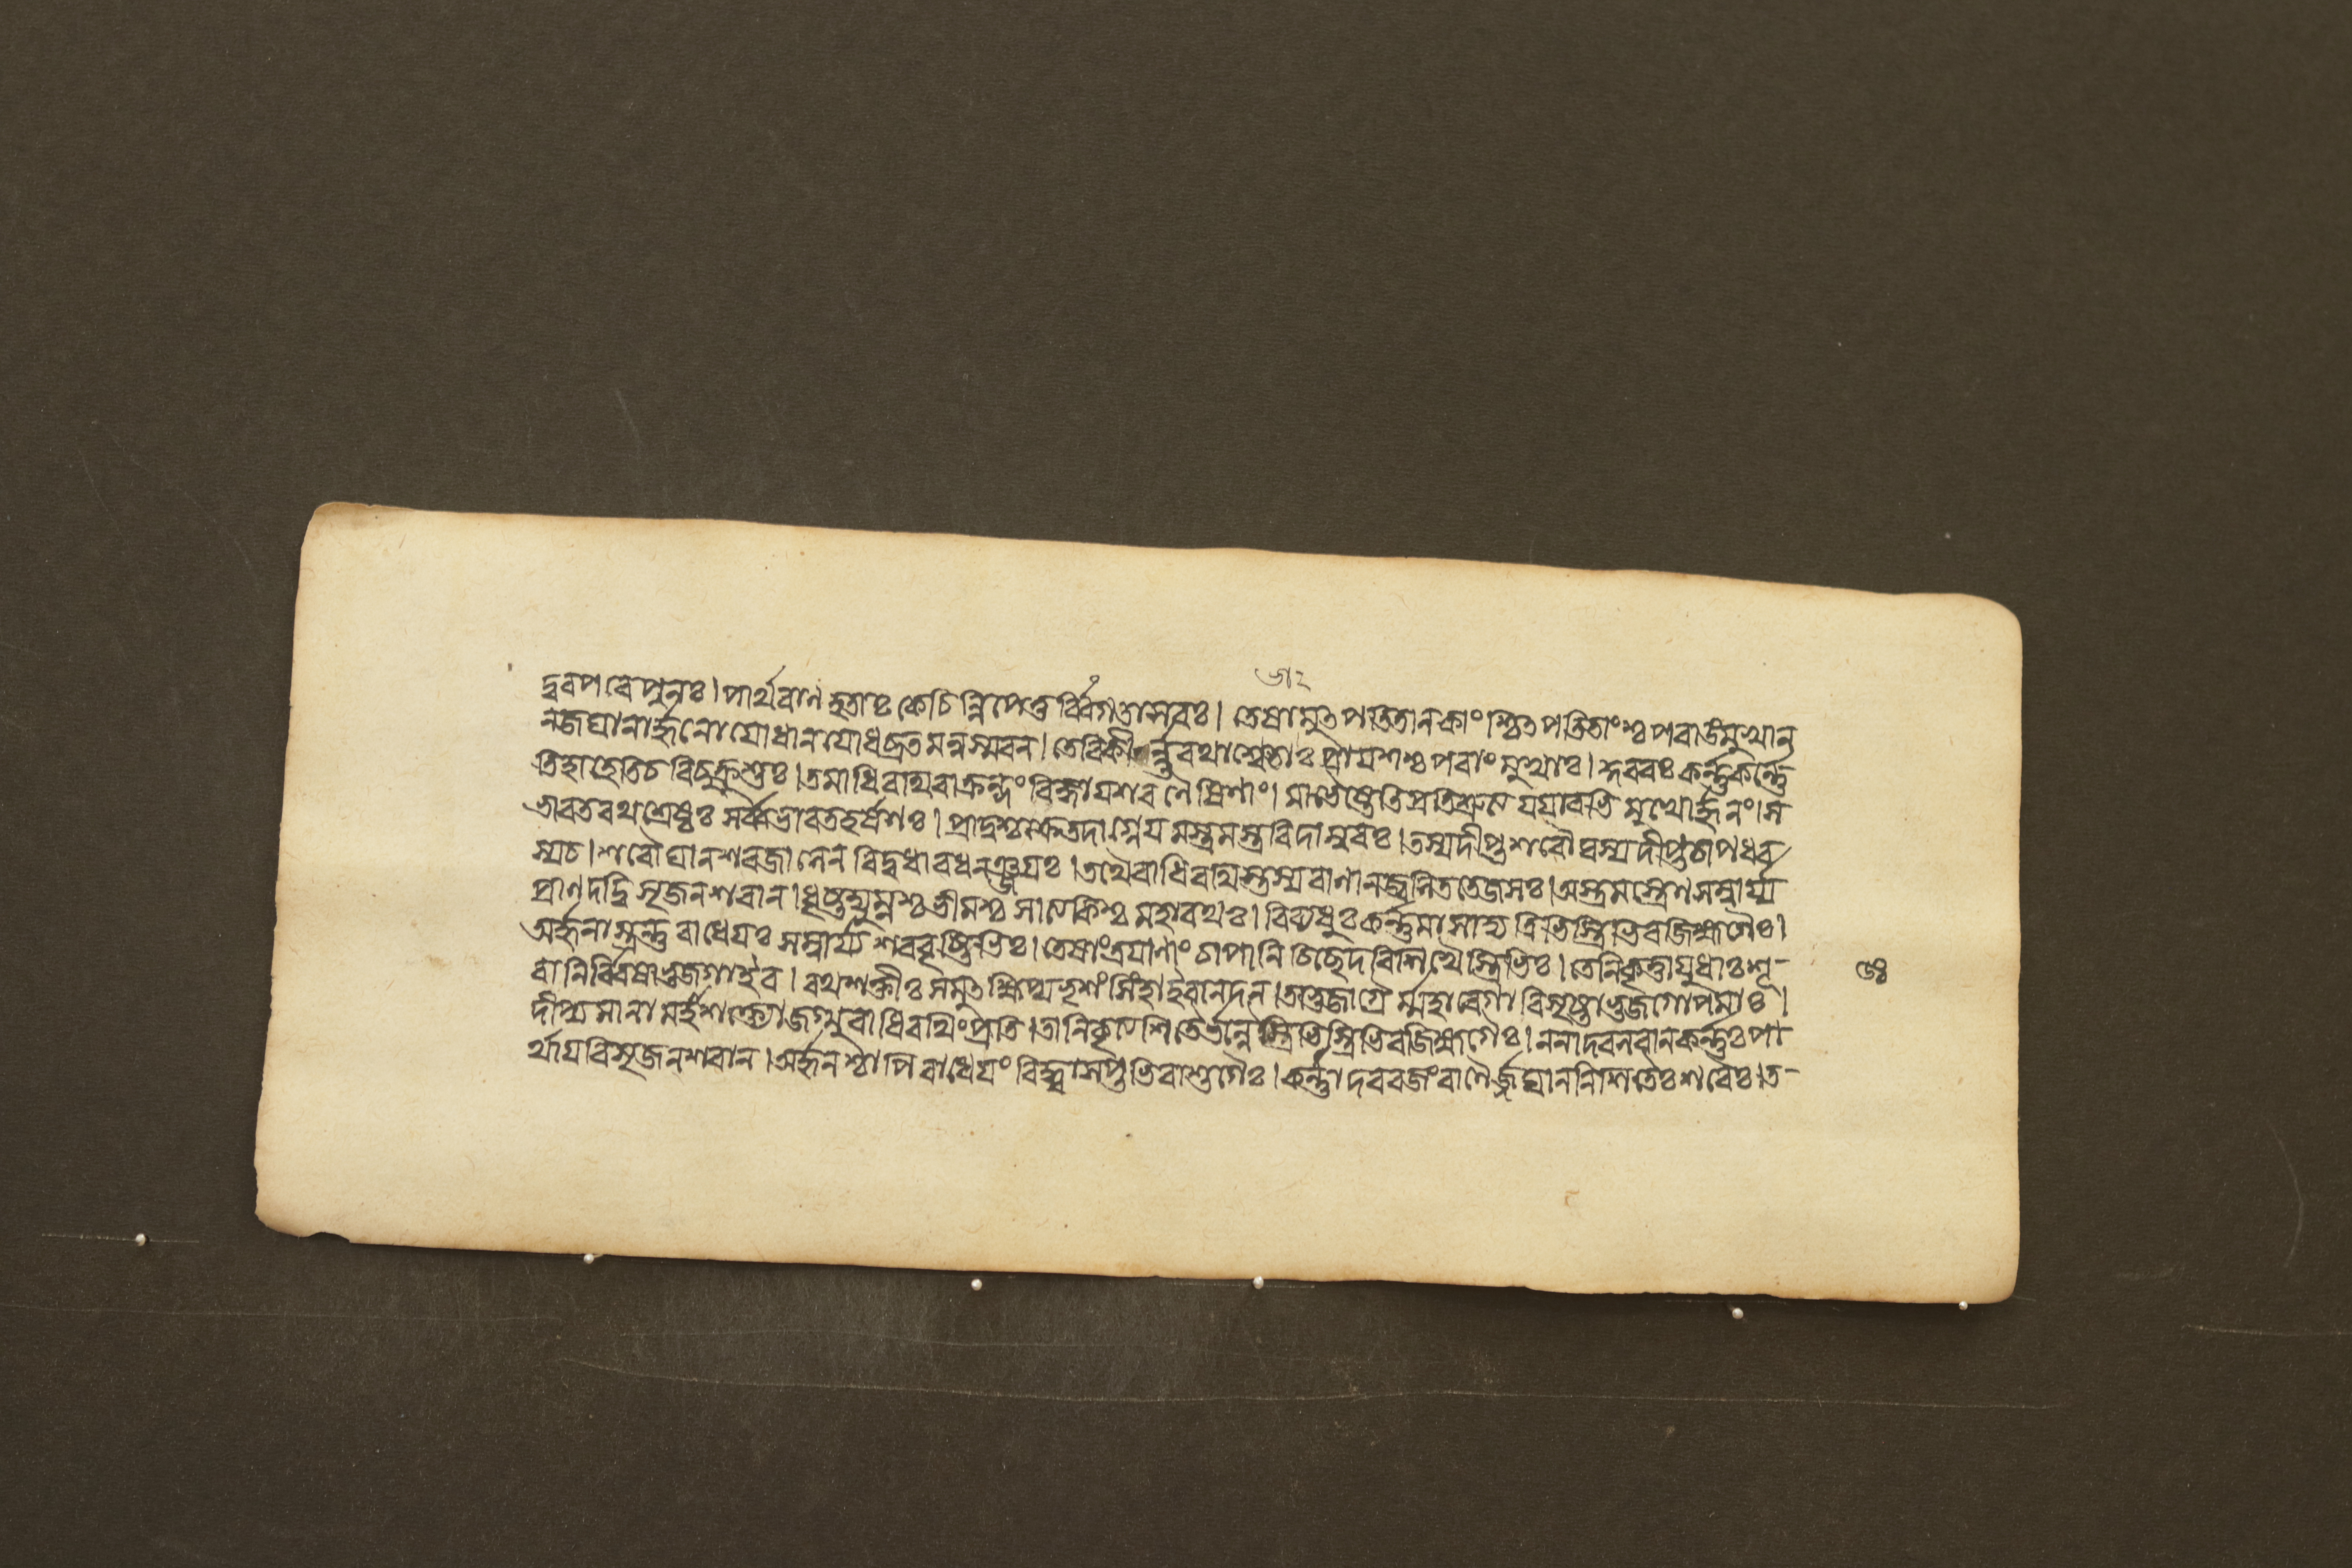 দ্রবপরে পুনঃ। পার্থবাণহতাঃ কেচিন্নিপেতুর্ব্বিগতাসবঃ। তেষামুৎপততানকাংশ্চিৎপতিতাংশ্চ পরাঙমুখান
নজঘানার্জ্জুনোযোধানযোধব্রতমনুস্মরন। তেবিকীর্ন্নরথাশ্বেভাঃ প্রায়শশ্চপরাংমুখাঃ। কুরবঃ কর্ন্নকর্ন্নে
তিহাহেতিচ বিচুক্রুশুঃ। তমাধিরথিরাক্রন্দং বিজ্ঞায়শরণৈষিণাং। মাভৈষ্টেতিপ্রতিশ্রুত্য যযাবভিমুখোর্জ্জুনং। স
ভারতরথশ্রেষ্ঠঃ সর্ব্বভারতহর্ষণঃ। প্রাদুশ্চক্রেতদাগ্নেয়মস্ত্রমস্ত্রবিদাম্বরঃ। তস্যদীপ্তশরৌঘস্যদীপ্তচাপধর
স্যচ। শরৌঘানশরজালেন বিদুধাবধনঞ্জয়ঃ। তথৈবাধিরথিস্তস্যবাণানজ্বলিততেজসঃ। অস্ত্রমস্ত্রেণসম্বার্য্য
প্রাণদদ্বিসৃজনশরান। ধৃষ্টদ্যুম্নশ্চভীমশ্চ সাত্যকিশ্চ মহারথঃ। বিব্যধুঃকর্ন্নমাসাদ্য ত্রিভিস্ত্রিভিরজিহ্মগৈঃ।
অর্জ্জুনাস্ত্রন্তু রাধেয়ঃ সম্বার্য্য শরবৃষ্টিভিঃ। তেষাংত্রয়াণাং চাপানি চিছেদবিশিখৈস্ত্রিভিঃ। তেনিকৃত্তায়ুধাঃশূ-
রানির্ব্বিষাভুজগাইব। রথশক্তীঃসমুৎক্ষিপ্যভৃশং সিংহাইবানদন। তাভুজাগ্রৈর্ম্মহাবেগা বিসৃষ্টাভুজগোপমাঃ।
দীপ্যমানা মহাশক্ত্যোজগ্মুরাধিরথিংপ্রতি। তানিকৃত্যশিতৈর্ব্বাণৈস্ত্রিভিস্ত্রিভিরজিহ্মগৈঃ। ননাদবলবানকর্ন্নঃপা-
র্থায়বিসৃজনশরান। অর্জ্জুনশ্চাপিরাধেয়ং বিদ্ধ্বাসপ্তভিরাশুগৈঃ। কর্ন্নাদবরজংবাণৈর্জ্জঘাননিশিতৈঃশরৈঃ। ত-